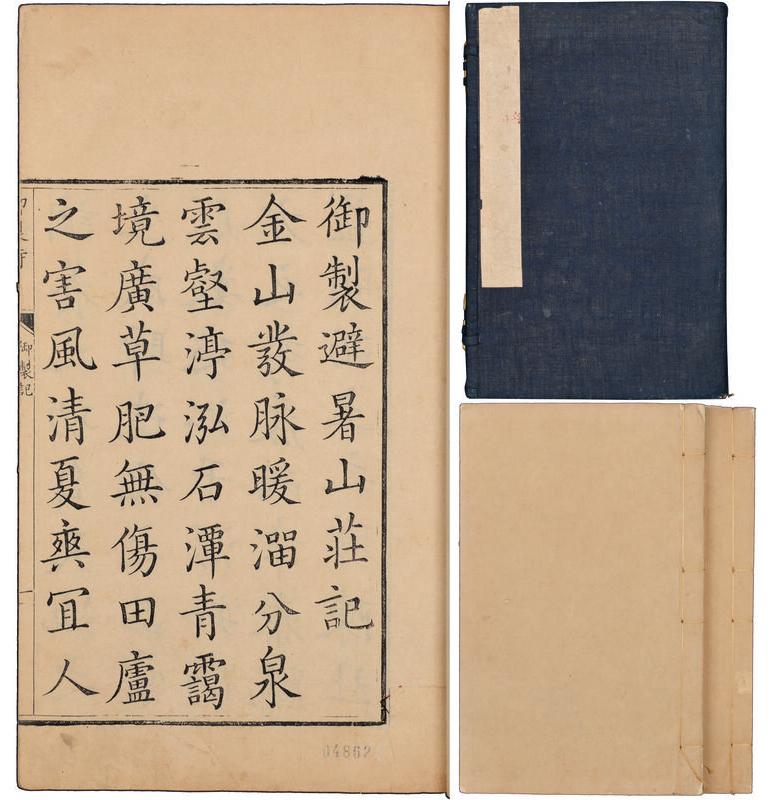 御製避暑山莊記
金山發脉暖溜分泉
雲壑渟泓石潭青靄
境廣草肥無傷田廬
之害風清夏爽冝人
御製記
一
04862